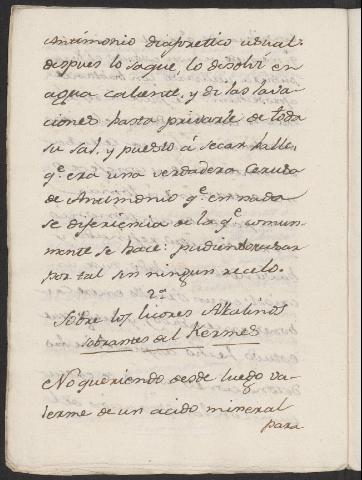 Antimonio diaforetico usual:
despues lo saque, lo disolvi en
agua caliente, y di las lava-
ciones hasta privarle de toda
su sal, y puesto á secar halle
q.e era una verdadera Cerusa
de Antimonio q.e en nada
se diferiencia de la q.e comun-
mente se hace: pudiendo usar
por tal sin ningun recelo.
2.a
Sobre los licores Alkalinos
sobrantes del Kermes
No queriendo desde luego va-
lerme de un acido mineral
para